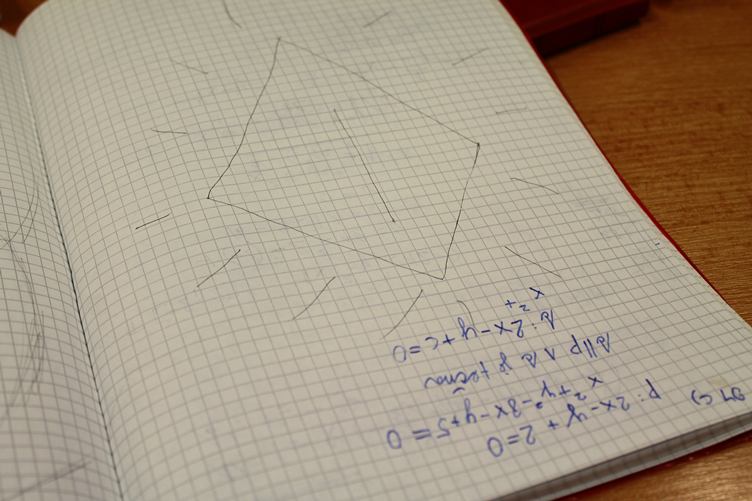 c) p: 2x-y+2=0
x²+y²-3x-y+5=0
s∥p ∧ s je tečna
s: 2x-y+c=0
x²+